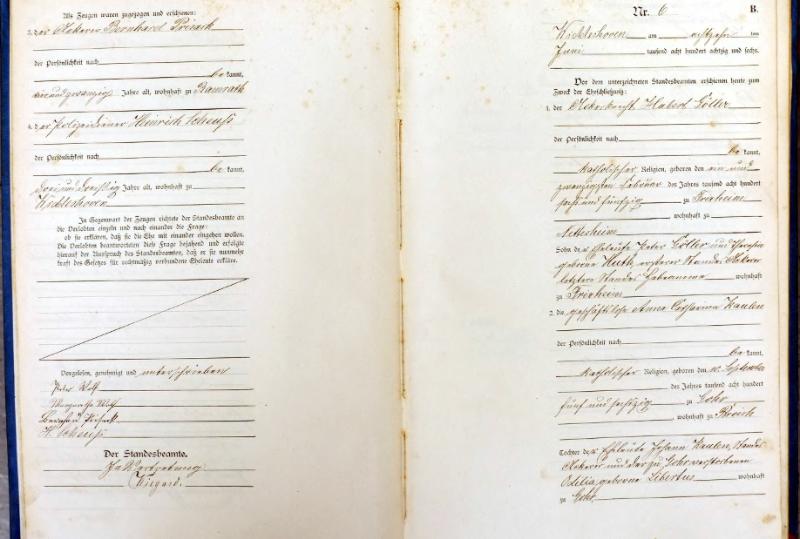 Als Zeugen waren zugezogen und erschienen:
3. der Ackerer Bernhard Prisack
der Persönlichkeit nach
be kannt,
vierundzwanzig Jahre alt, wohnhaft zu Ramrath
4. der Polizeidiener Heinrich Scheuß
der Persönlichkeit nach
be kannt,
dreiunddreißig Jahre alt, wohnhaft zu
In Gegenwart der Zeugen richtete der Standesbeamte an
die Verlobten einzeln und nach einander die Frage:
ob sie erklären, daß sie die Ehe mit einander eingehen wollen.
Die Verlobten beantworteten diese Frage bejahend und erfolgte
hierauf der Ausspruch des Standesbeamten, daß er sie nunmehr
kraft des Gesetzes für rechtmäßig verbundene Eheleute erkläre.
Vorgelesen, genehmigt und unterschrieben
Peter Wolf
Margaretha Wolf
Bernhard Prisack
H. Scheuß
Der Standesbeamte.
In Vertretung
Nr. 6 B.
am achtzehn ten
Juni tausend acht hundert achtzig und sechs.
Vor dem unterzeichneten Standesbeamten erschienen heute zum
Zweck der Eheschließung:
1. der Ackerknecht Hubert Göller
der Persönlichkeit nach
be kannt,
katholischer Religion, geboren den ein und
zwanzigsten Februar des Jahres tausend acht hundert
sechs und fünfzig zu Frixheim
wohnhaft zu
Nettesheim
Sohn der Eheleute Peter Göller und Theresia
geborene Huth, ersterer Standes Ackerer
letztere Standes Hebamme wohnhaft
zu Frixheim
2. die geschäftslose Anna Catharina Kaulen
der Persönlichkeit nach
be kannt,
katholischer Religion, geboren den 10. September
des Jahres tausend acht hundert
fünf und sechszig zu Gohr
wohnhaft zu Broich
Tochter der Eheleute Johann Kaulen, Standes
Ackerer und der zu Gohr verstorbenen
Odilia geborene Libertus wohnhaft
zu Gohr